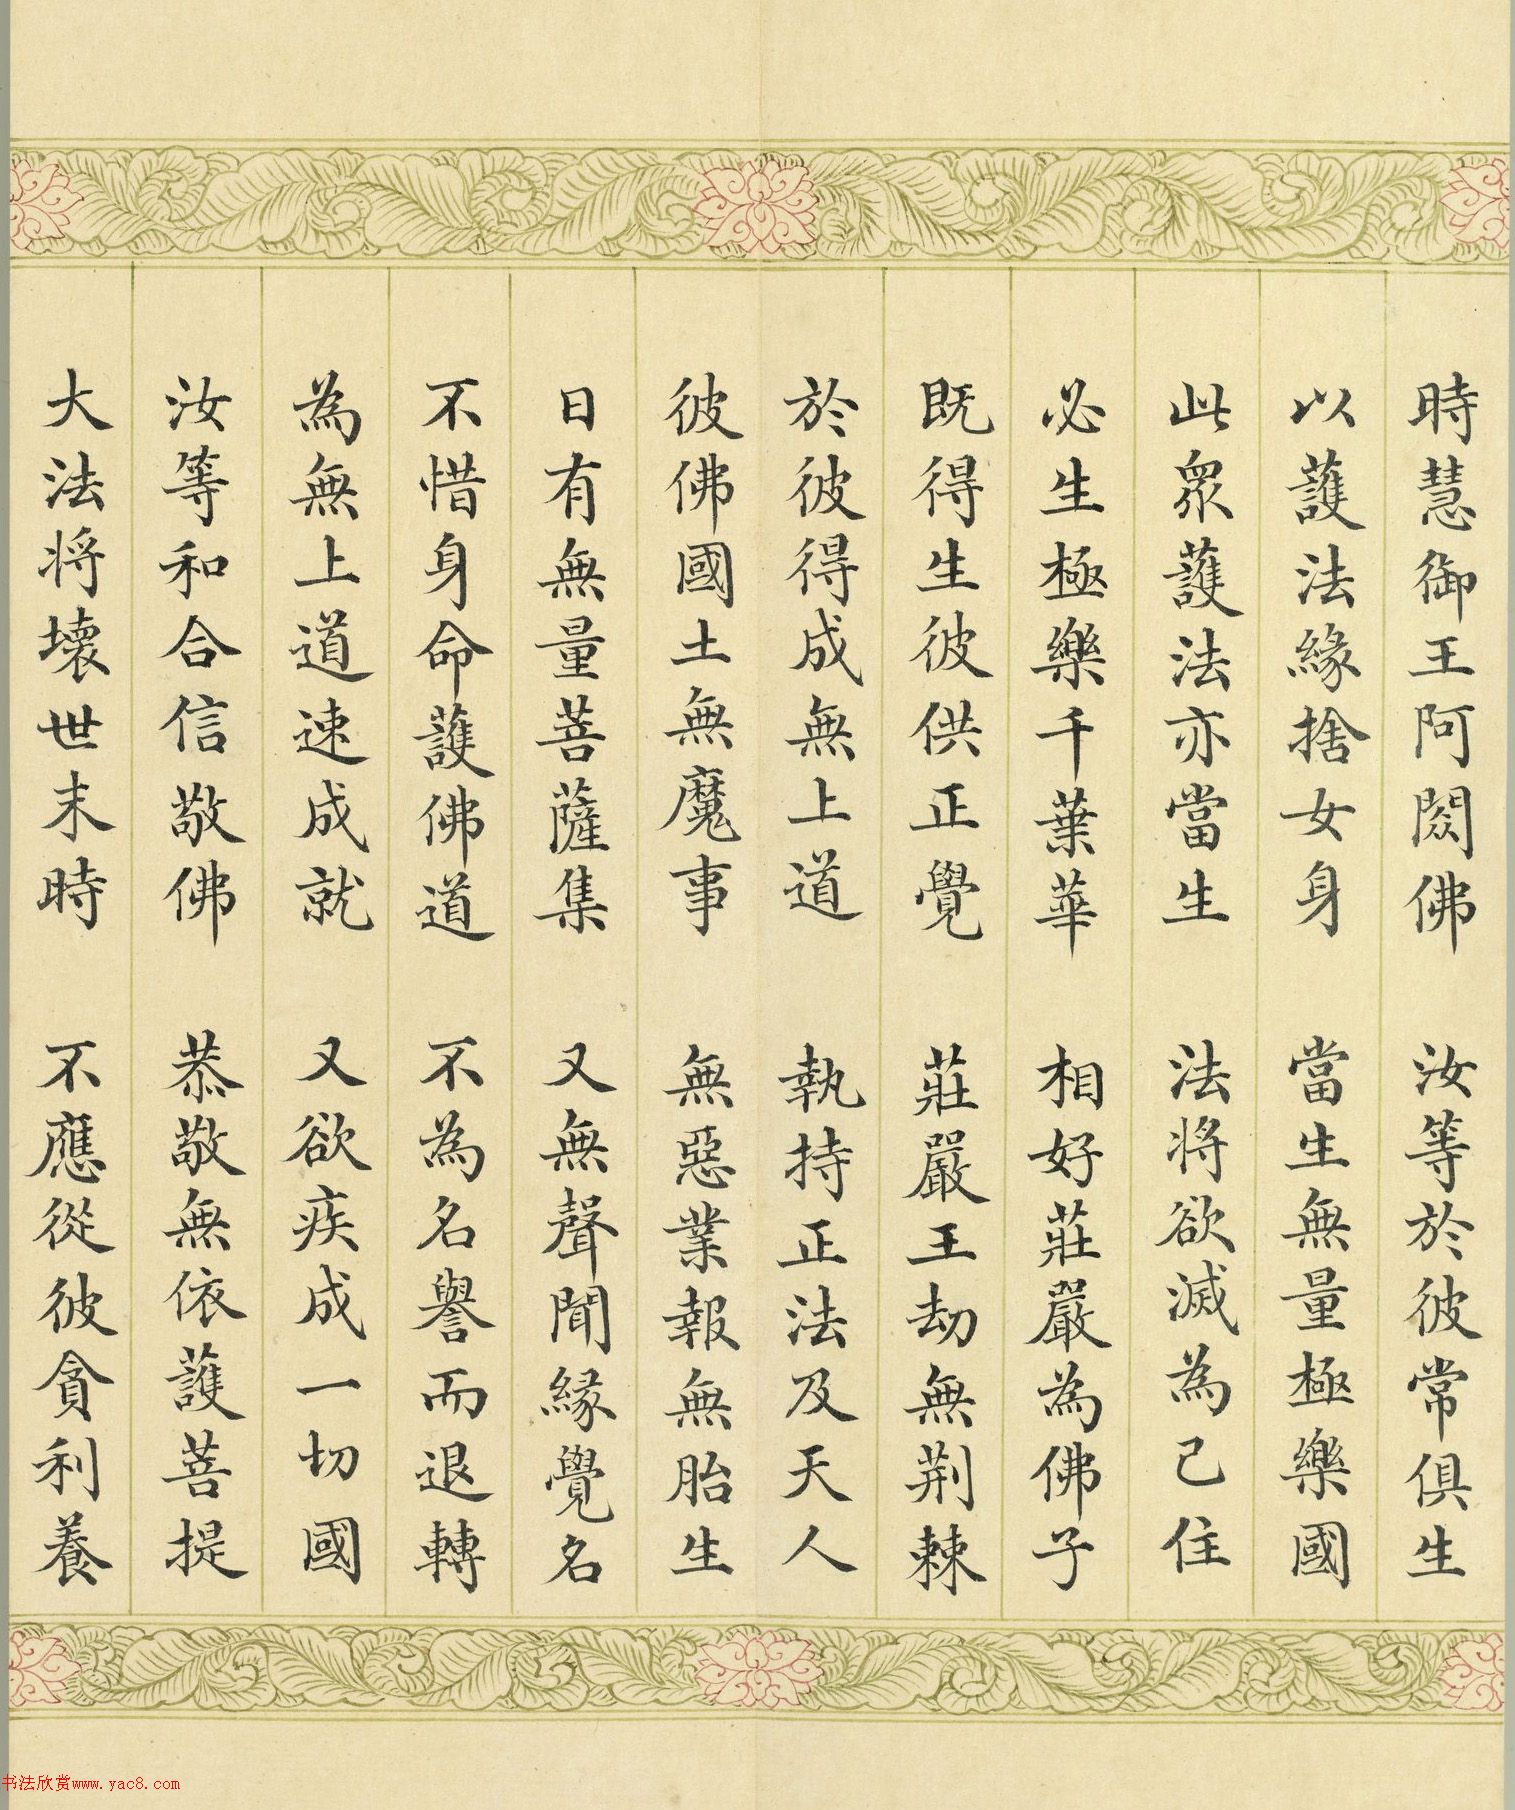 時慧御王阿閦佛　汝等於彼常俱生
以護法緣捨女身　當生無量極樂國
此眾護法亦當生　法將欲滅為己住
必生極樂千葉華　相好莊嚴為佛子
既得生彼供正覺　莊嚴王劫無荆棘
於彼得成無上道　執持正法及天人
彼佛國土無魔事　無惡業報無胎生
日有無量菩薩集　又無聲聞緣覺名
不惜身命護佛道　不為名譽而退轉
為無上道速成就　又欲疾成一切國
汝等和合信敬佛　恭敬無依護菩提
大法将壞世末時　不應從彼貪利養
书法欣赏www.yac8.com